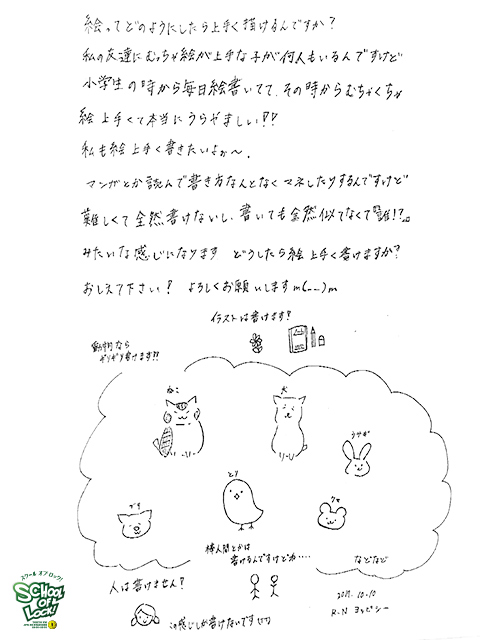 絵ってどのようにしたら上手く描けるんですか?
私の友達にむっちゃ絵が上手な子が何人もいるんですけど
小学生の時から毎日絵書いてて、その時からむちゃくちゃ
絵上手くて本当にうらやましい!!
私も絵上手く書きたいよぉ〜。
マンガとか読んで書き方なんとなくマネしたりするんですけど
難しくて全然書けないし、書いても全然似てなくて『誰!?』
みたいな感じになります どうしたら絵上手く書けますか?
おしえて下さい! よろしくお願いしますm(__)m
イラストは書けます!
動物なら
ギリギリ書けます!!
ねこ
犬
うサギ
とり
ブタ
クマ
棒人間とかは
書けるんですけどね.....
などなど
人は書けません?
この感じしか書けないです
2011.10.10
R.N
スクール オブ ロック!
SCHOOL OF LOCK!